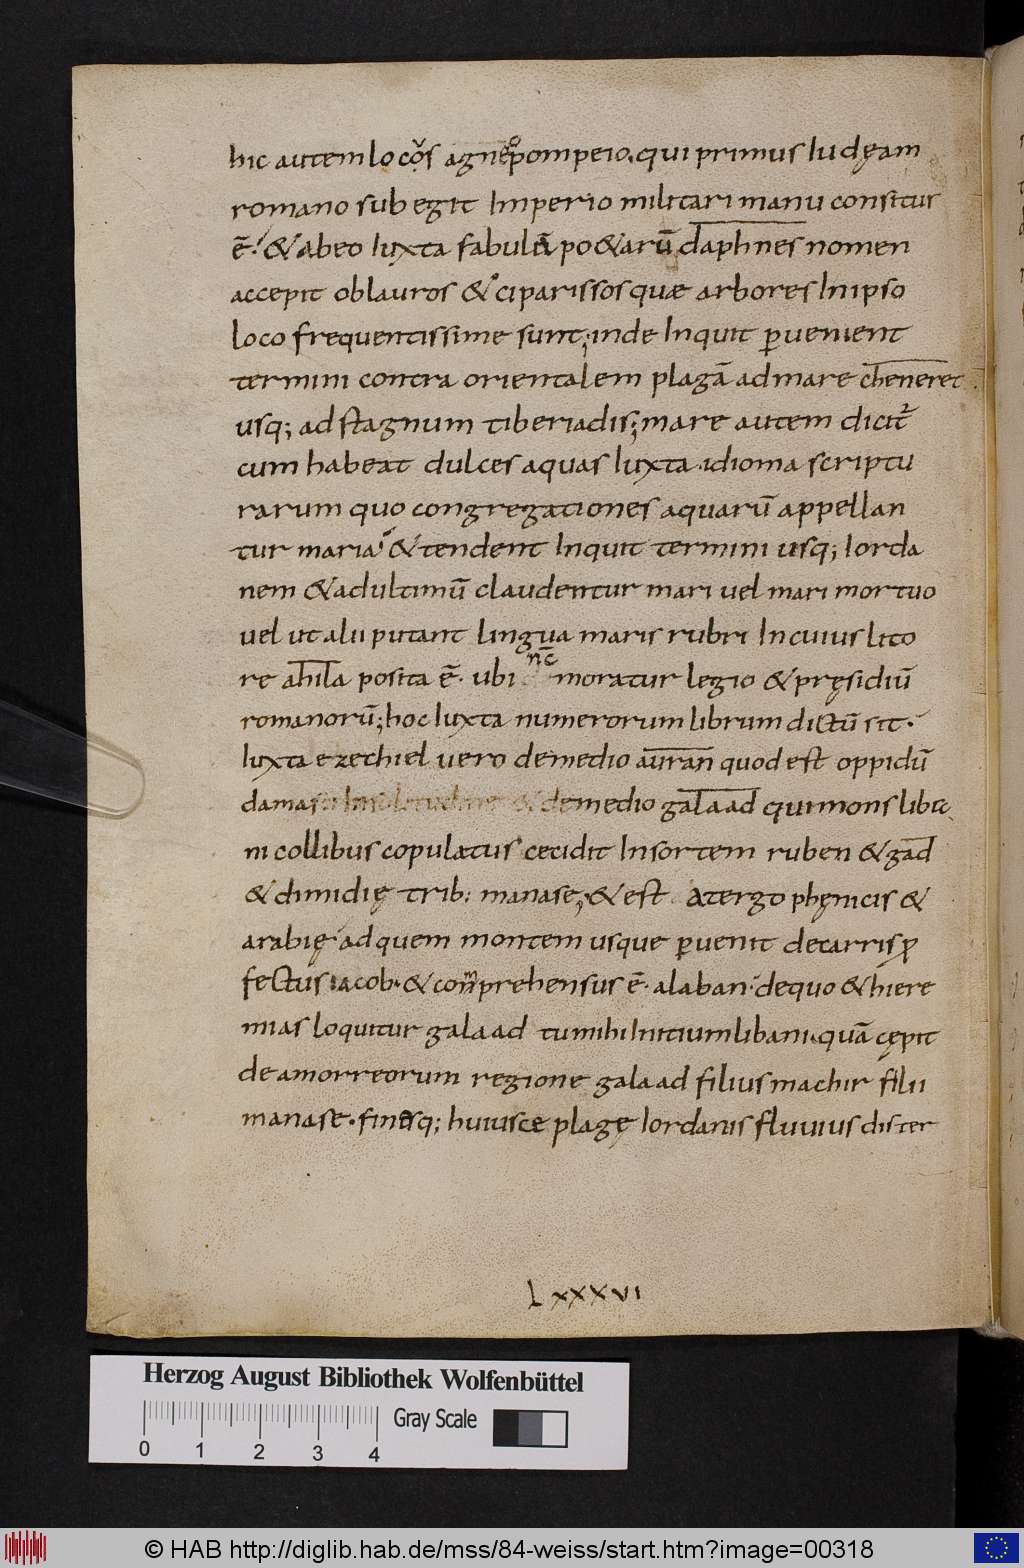 hic autem locos a gneo pompeio. qui primus Iudęam
romano subegit Imperio militari manu consitus
ē. & abeo Iuxta fabulā po&arū daphnes nomen
accepit oblauros & ciparissos quæ arbores Inipso
loco frequentissime sunt; inde Inquit ꝑuenient
termini contra orientalem plagā admare cheneret
usq; ad stagnum tiberiadis; mare autem dicit᷑
cum habeat dulces aquas Iuxta idioma scriptu
rarum quo congregationes aquarū appellan
tur maria & tendent Inquit termini usq; Iorda
nem & adultimū claudentur mari vel mari mortuo
vel ut alii putant lingua maris rubri In cuius lito
re ahila posita ē. ubi nc̄ moratur legio & pręsidiū
romanorū; hoc Iuxta numerorum librum dictū sit.
Iuxta ezechiel vero demedio auran quod est oppidū
damasci In solitudine & demedio galaad qui mons liba
ni collibus copulatus cecidit Insortem ruben & gad
& dimidię trib: manase; & est Atergo phęnicis &
arabię ad quem montem usque ꝑuenit decarris ꝓ
fectus iacob. & conmprehensus ē. alaban. dequo & hiere
mias loquitur galaad tu mihi Initium libani. quā cępit
de amorreorum regione galaad filius machir filii
manase. finesq; huiusce plagę Iordanis fluuius dister
Lxxxvi
Herzog August Bibliothek Wolfenbüttel
Gray Scale
0 1 2 3 4
© HAB http://diglib.hab.de/mss/84-weiss/start.htm?image=00318